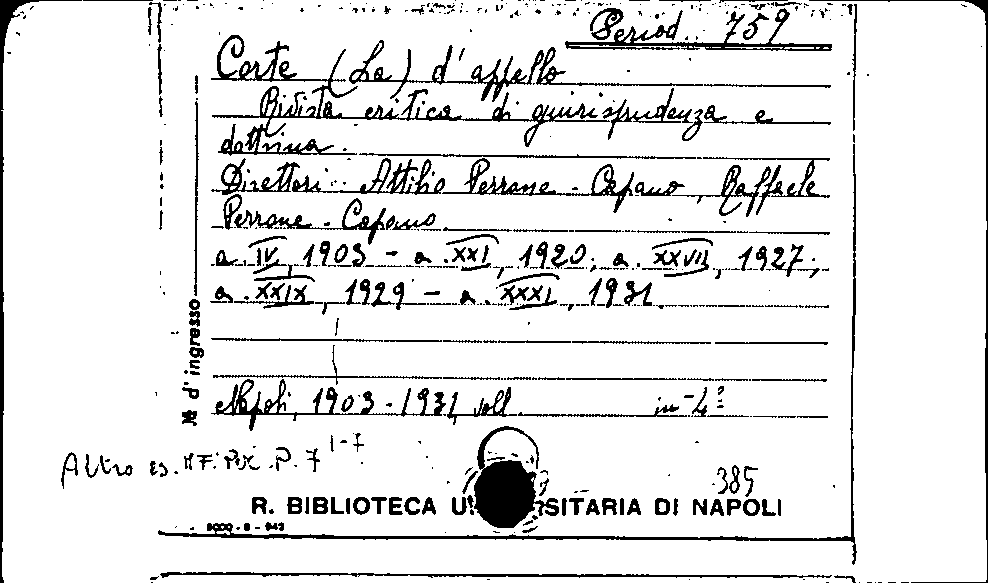 Period. 759
Corte (La) d'appello
Rivista critica di giurisprudenza e
dottrina.
Direttori: Attilio Perrone-Capano, Raffaele
Perrone-Capano.
a. IV, 1903 - a. XXI, 1920; a. XXVII, 1927;
a. XXIX, 1929 - a. XXXI, 1931.
Napoli, 1903-1931, voll. in-4º
№ d'ingresso
Altro es. P. 7 1-7
385
R. BIBLIOTECA UNIVERSITARIA DI NAPOLI